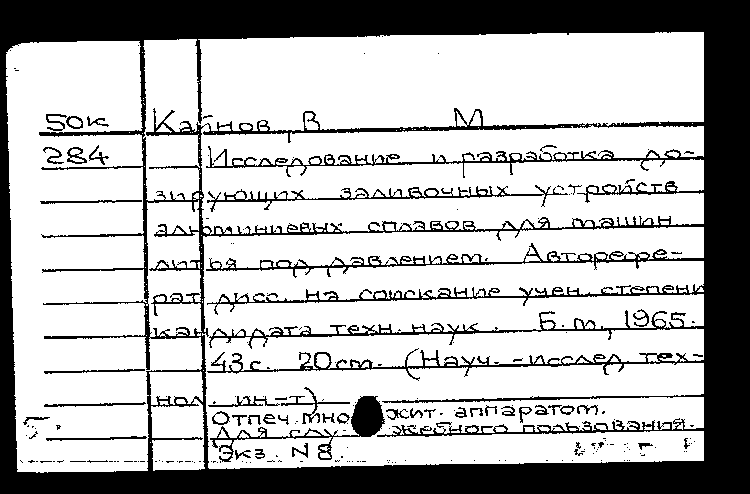 50к Кайнов, В М
284 Исследование и разработка до-
зирующих заливочных устройств
алюминиевых сплавов для машин
литья под давлением. Авторефе-
рат дисс. на соискание учен. степени
кандидата техн. наук. Б.м., 1965.
43с. 20см. (Науч.-исслед. тех-
нол. ин-т)
Отпеч. мно жит. аппаратом.
5. Для слу жебного пользования.
Экз. N8.